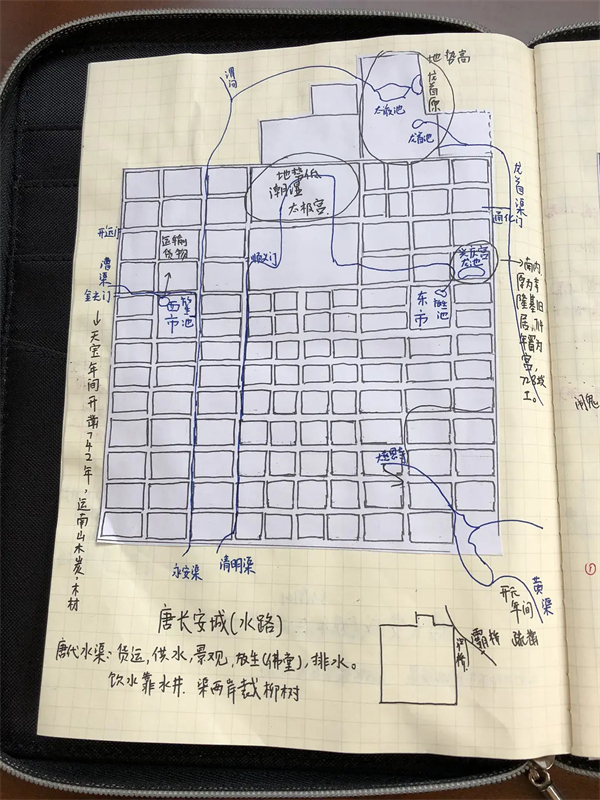 渭河
地势高
龙首原
太液池
龙首池
龙首渠
地势低
潮湿
太极宫
通化门
开远门
运输
货物
顺义门
兴庆宫
龙池
漕渠
金光门
西市
放生池
东市
放生池
→南内
原为李
隆基旧
居，714
年置为
宫，
728竣
工。
↓天宝年间开凿742年，运南山木炭，木材
闹鬼
慈恩寺
永安渠
清明渠
黄渠
开元
年间
疏凿
唐长安城(水路)
灞桥
唐代水渠：货运，供水，景观，放生(佛堂)，排水。
饮水靠水井 渠两岸栽柳树